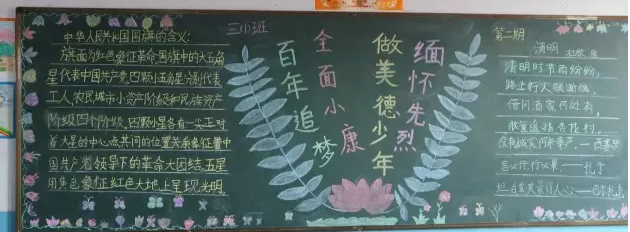 三小班
中华人民共和国国旗的含义:
旗面为红色象征革命,国旗中的大五角
星代表中国共产党,四颗小五角星分别代表
工人,农民,城市小资产阶级和民族资产
阶级四个阶级,四颗小星各有一尖正对
着大星的中心点,其间的位置关系象征着中
国共产党领导下的革命大团结,五星
用黄色象征红色大地上呈现光明。
百年追梦
全面小康
做美德少年
缅怀先烈
第二期
清明
清明时节雨纷纷,
路上行人欲断魂。
借问酒家何处有,
牧童遥指杏花村。
西塞罗
言必行,行必果。——孔子
人心——巴尔扎克